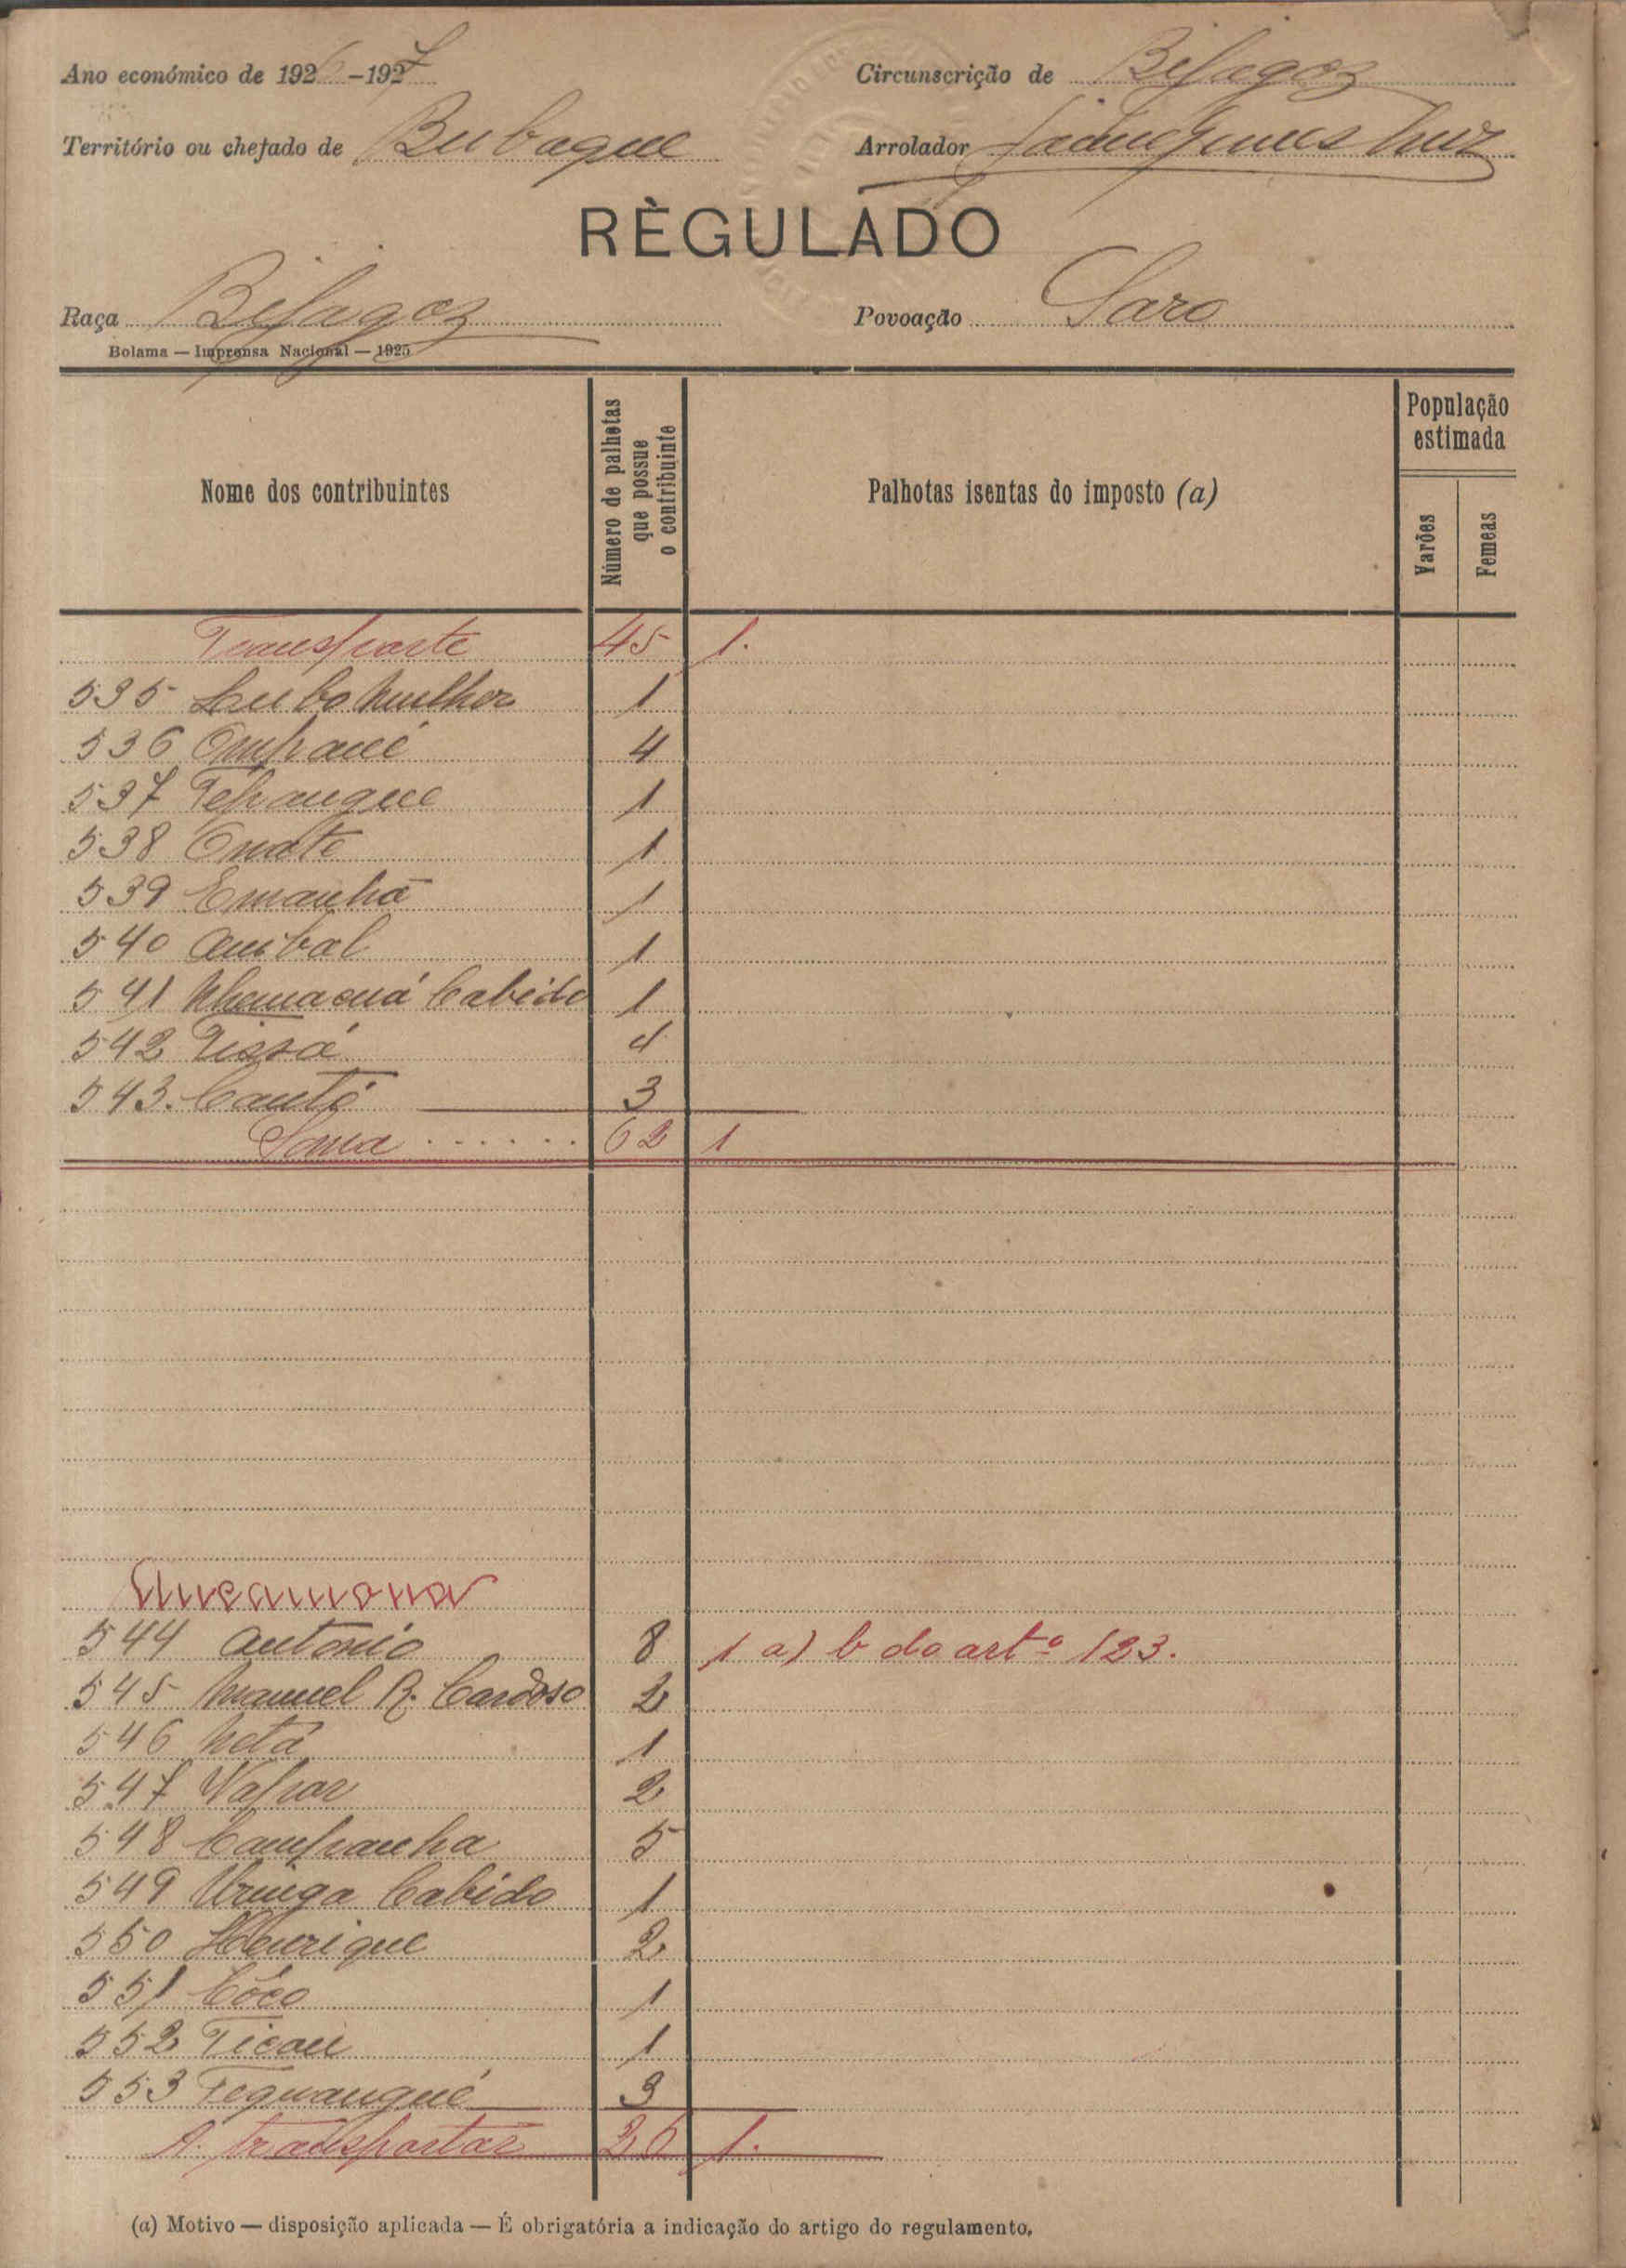 Ano económico de 1926-1927
Circunscrição de Bijagoz
Território ou chefado de Bubaque
Arrolador
RÈGULADO
Raça Bijagoz
Povoação Saro
Bolama — Imprensa Nacional — 1925
Nome dos contribuintes
Número de palhotas que possue o contribuinte
Palhotas isentas do imposto (a)
População estimada
Varões
Femeas
Transporte 45 1.
535 Mulher 1
536 4
537 Tepangue 1
538 Onoto 1
539 Emanhã 1
540 Anibal 1
541 Cabido 1
542 Tissá 4
543. Cantó 3
Soma ...... 62 1
544 Antonio 8 1 a) b do artº 123.
545 Manuel R. Cardoso 2
546 Netá 1
547 Vapor 2
548 Campanha 5
549 Uringa Cabido 1
550 Henrique 2
551 Côco 1
552 Ticau 1
553 Tequangué 3
A transportar 26 1.
(a) Motivo — disposição aplicada — É obrigatória a indicação do artigo do regulamento.